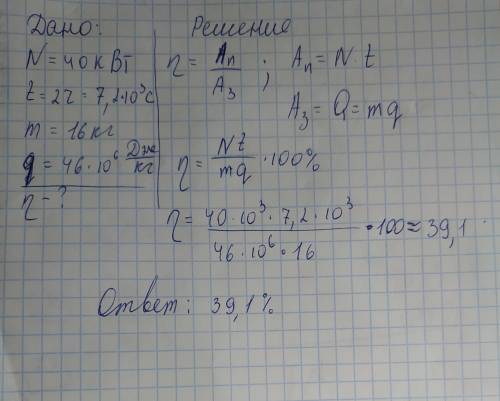 Дано:
N = 40 кВт
t = 2ч = 7,2·10³с
m = 16 кг
q = 46·10⁶ Дж/кг
η - ?
Решение
η = Aп/Aз ; Aп = N·t
Aз = Q = mq
η = Nt/mq ·100%
η = 40·10³·7,2·10³/46·10⁶·16 ·100 ≈ 39,1
Ответ: 39,1%